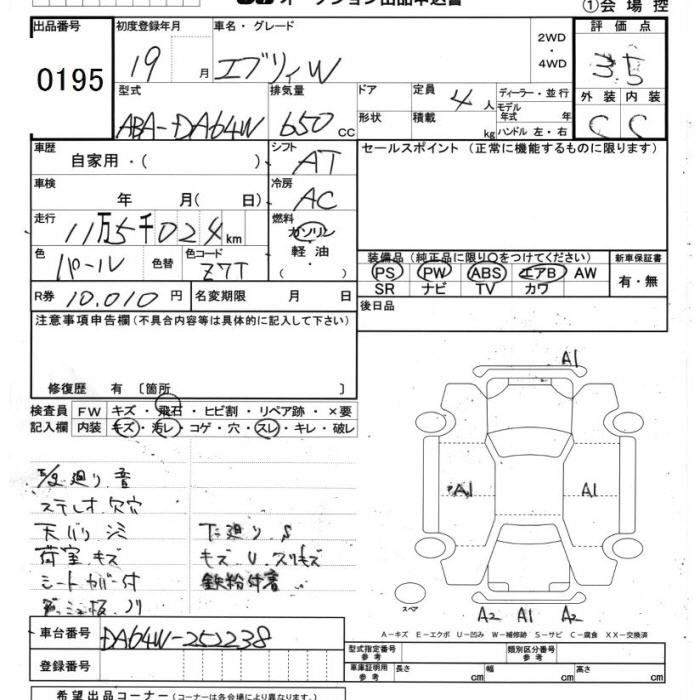 オークション出品申込書
①会場控
出品番号 0195
初度登録年月 19 月
車名・グレード エブリィW
2WD・4WD
評価点 3.5
型式 ABA-DA64W
排気量 650 CC
ドア 形状
定員 4 人
積載 kg
ディーラー・並行
モデル年式 年
ハンドル 左・右
外装 C 内装 C
車歴 自家用・( )
シフト AT
セールスポイント (正常に機能するものに限ります)
車検 年 月( 日)
冷房 AC
走行 11万5千024km
燃料 ガソリン・軽油・( )
色 パール 色替 色コード Z7T
装備品 (純正品に限り○をつけてください)
新車保証書
PS PW ABS エアB AW
有・無
SR ナビ TV カワ
R券 10.010円 名変期限 月 日
後日品
注意事項申告欄 (不具合内容等は具体的に記入して下さい)
修復歴 有 〔箇所 〕
A1
検査員記入欄 FW キズ・飛石・ヒビ割・リペア跡・×要
内装 キズ・汚レ・コゲ・穴・スレ・キレ・破レ
廻り 音
ステレオ 欠穴
天バリ シミ 下廻り S
荷室 キズ キズ U スリキズ
シートカバー付 鉄粉付着
ダッシュ板 ノリ
A1 A1
スペア
A2 A1 A2
A-キズ E-エクボ U-凹み W-補修跡 S-サビ C-腐食 XX-交換済
車台番号 DA64W-252238
登録番号
型式指定番号 参考
類別区分番号 参考
車庫証明用 参考 長さ cm 幅 cm 高さ cm
希望出品コーナー (コーナーは各会場により異なります。)